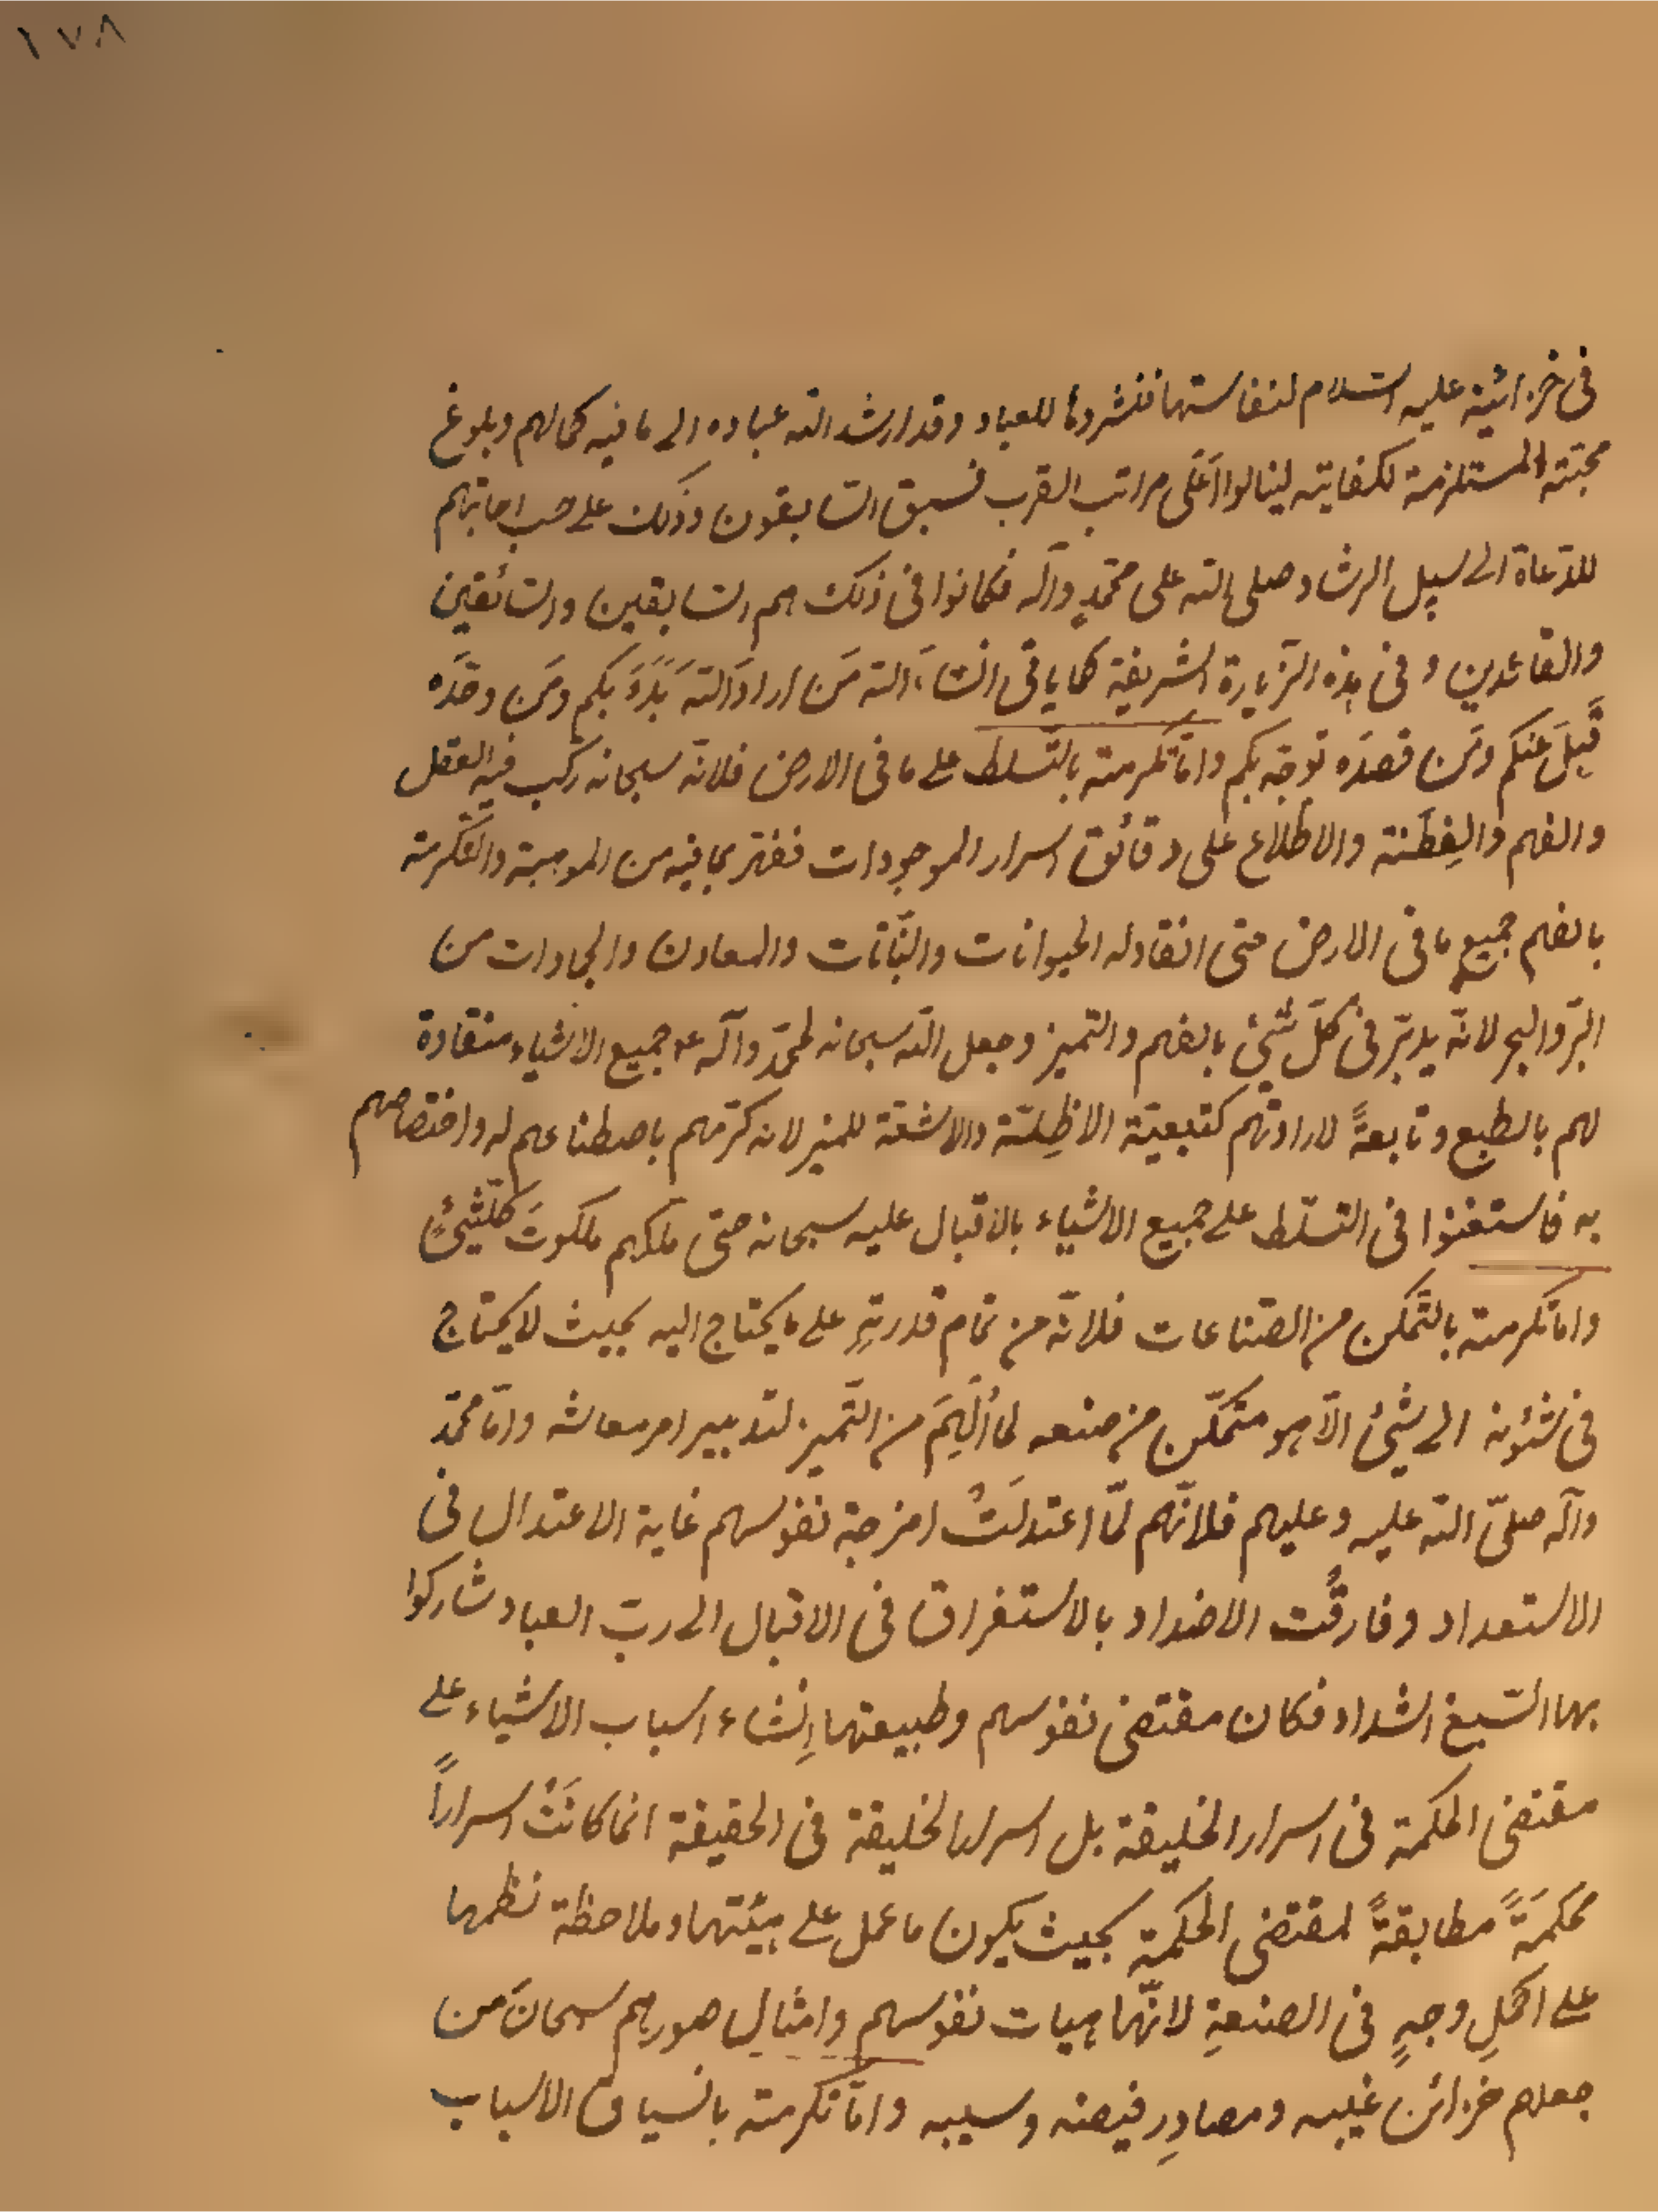 ١٧٨
في خزائنه عليه السلام لنفاستها فنشروها للعباد وقد ارشد الله عباده الى ما فيه كمالهم وبلوغ
محبّته المستلزمة لكفايته لينالوا اَعْلى مراتب القرب فسبق السّابقون وذلك على حسب اجابتهم
للدّعاة الى سبيل الرشاد صلى الله على محمّدٍ وآله فكانوا في ذلك هم السّابقين والسّائقين
والقائدين و في هذه الزّيارة الشريفة كما ياتي انشاءَ الله مَن ارادَ اللهَ بَدَءَ بكم ومَن وحّدَه
قَبِلَ عنكم ومَن قصدَه توجّه بكم وامّا تكرمته بالتّسلط على ما في الارض فلانّه سبحانه ركّب فيه العقل
والفهم والفِطْنة والاطّلاع على دقائق اسرار الموجودات فقهر بما فيه من الموهبة والتّكرمة
بالفهم جميع ما في الارض حتى انقاد له الحيوانات والنّباتات والمعادن والجمادات من
البَرّ والبحر لانّه يدبّر في كلّ شيئ بالفهم والتميز وجعل الله سبحانه لمحمّد وآله ع جميع الاشياء منقادة
لهم بالطبع وتابعةً لارادتهم كتبعيّة الاظِلّة والاشعّة للمنير لانه كرّمهم باصطناعهم له واختصاصهم
به فاستغنوا في التسلّط على جميع الاشياء بالاقبال عليه سبحانه حتى ملّكهم ملكوتَ كلّشيئٍ
وامّا تكرمته بالتّمكن من الصّناعات فلانّه من تمام قدرتِهِ على ما يحتاج اليه بحيث لا يحتاج
في شئونه الى شيئ الّا هو متمكّن من صنعه لما اُلْهِمَ من التّميز لتدبير امر معاشه وامّا محمّد
وآله صلّى الله عليه وعليهم فلانّهم لمّا اعتدلَتْ امزجة نفوسهم غاية الاعتدال في
الاستعداد وفارقَت الاضداد بالاستغراق في الاقبال الى ربّ العباد شاركوا
بها السّبع الشداد فكان مقتضى نفوسهم وطبيعتها اِنشاء اسباب الاشياء على
مقتضى الحكمة في اسرار الخليقة بل اسرار الخليقة في الحقيقة انما كانَتْ اسراراً
محكمَةً مطابقةً لمقتضى الحكمة بحيث يكون ما عمل على هيئتها وملاحظة نظمها
على اكملِ وجهٍ في الصنعةِ لانّها هيات نفوسهم وامثال صورهم سبحانَ من
جعلهم خزائن غيبه ومصادِر فيضه وسيبه وامّا تكرمته بانسياق الاسباب